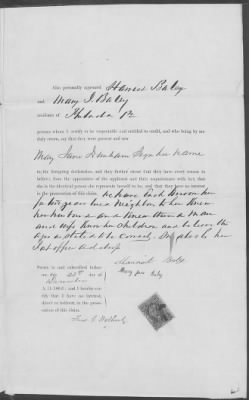 Also personally appeared Harriet Baley
and Mary J. Baley
residents of Philada Pa
persons whom I certify to be respectable and entitled to credit, and who being by me
duly sworn, say that they were present and saw
Mary Jane Denham sign her name
to the foregoing declaration, and they further swear that they have every reason to
believe, from the appearance of the applicant and their acquaintance with her, that
she is the identical person she represents herself to be, and that they have no interest
in the prosecution of this claim. We have Each known her
for ten years lived neighbors to her knew
her husband and knew them as man
and wife knew her children and believe the
ages as stated to be correct.
Sworn to and subscribed before
me 20th day of
December
A.D. 186 ; and I hereby certify
that I have no interest,
direct or indirect, in the prosecution
of this claim.
Harriet Baly
Mary Jane Baley